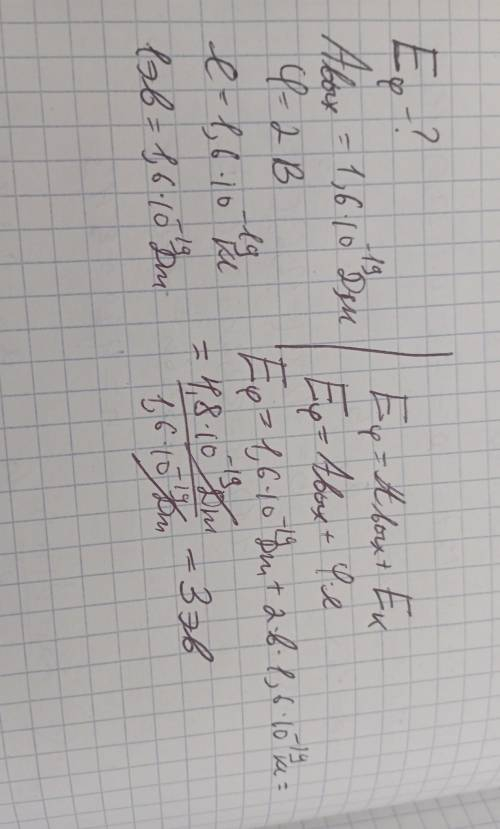 Eφ - ?
Aвых = 1,6·10⁻¹⁹ Дж
φ = 2 В
e = 1,6·10⁻¹⁹ Кл
1эв = 1,6·10⁻¹⁹ Дж
Eφ = Aвых + Eк
Eφ = Aвых + φ·e
Eφ = 1,6·10⁻¹⁹ Дж + 2·в·1,6·10⁻¹⁹ кл =
= 4,8·10⁻¹⁹ Дж / 1,6·10⁻¹⁹ Дж = 3 эв